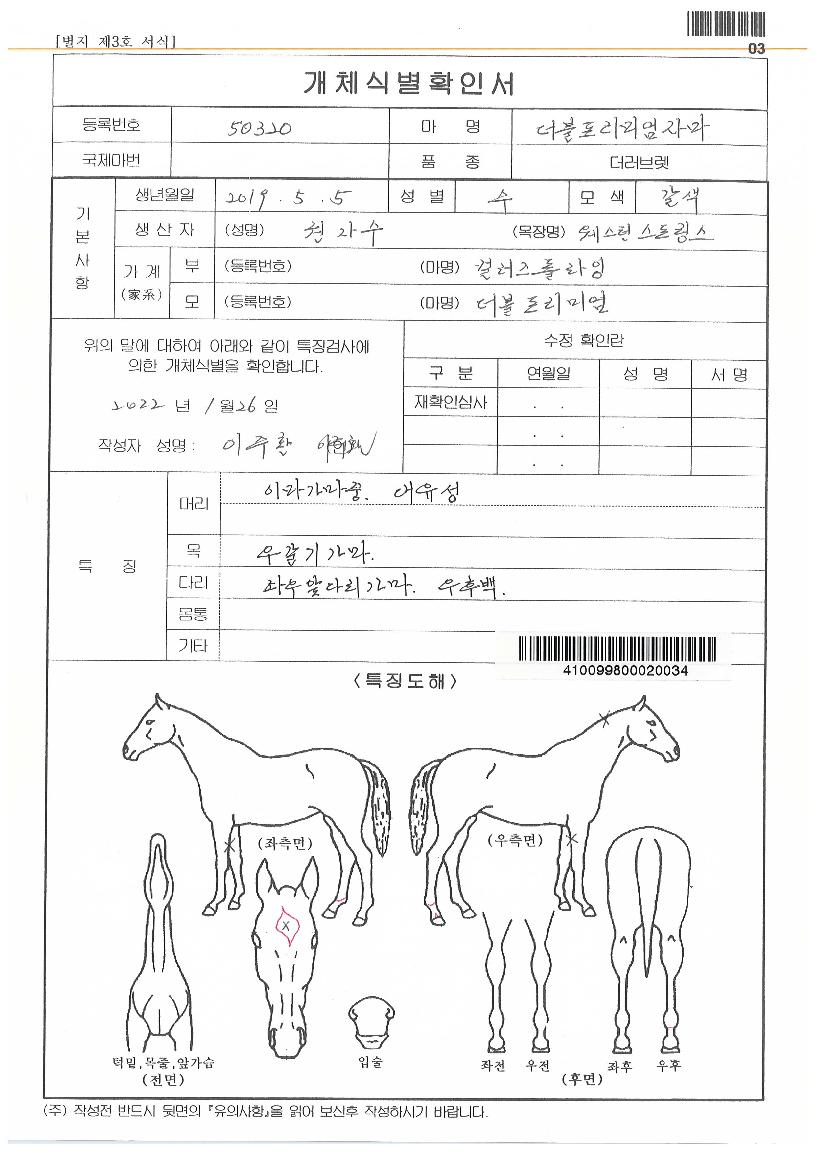 [별지 제3호 서식]
03
개체식별확인서
등록번호 50320 마 명 더블프리미엄자마
국제마번 품 종 더러브렛
기본사항
생년월일 2019 . 5 . 5 성 별 수 모 색 갈색
생 산 자 (성명) 천 자 수 (목장명) 웨스턴 스트링스
기 계 (家系)
부 (등록번호) (마명) 컬러즈플라잉
모 (등록번호) (마명) 더블 프리미엄
위의 말에 대하여 아래와 같이 특징검사에
의한 개체식별을 확인합니다.
2022 년 1 월 26 일
작성자 성명 : 이주환
수정 확인란
구 분 연월일 성 명 서 명
재확인심사 . .
. .
. .
특 징
머리 이마가마중. 대유성
목 우갈기가마.
다리 좌우앞다리가마. 우후백.
몸통
기타
410099800020034
<특징도해>
(좌측면) (우측면)
턱밑,목줄,앞가슴
(전면)
입술
좌전 우전 좌후 우후
(후면)
(주) 작성전 반드시 뒷면의 『유의사항』을 읽어 보신후 작성하시기 바랍니다.